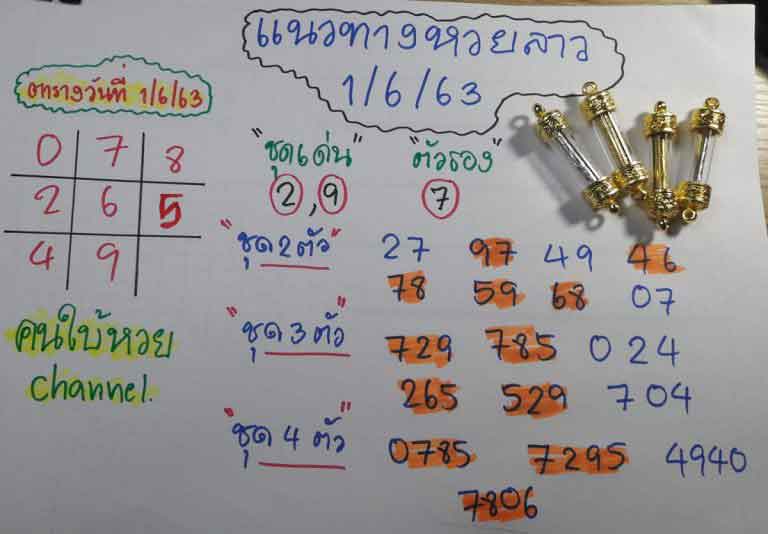 แนวทางหวยลาว
1/6/63
ตารางวันที่ 1/6/63
0 7 8
2 6 5
4 9
คนใบ้หวย
channel.
"ชุดเด่น" "ตัวรอง"
2,9 7
"ชุด 2 ตัว" 27 97 49 46
78 59 68 07
"ชุด 3 ตัว" 729 785 024
265 529 704
"ชุด 4 ตัว" 0785 7295 4940
7806